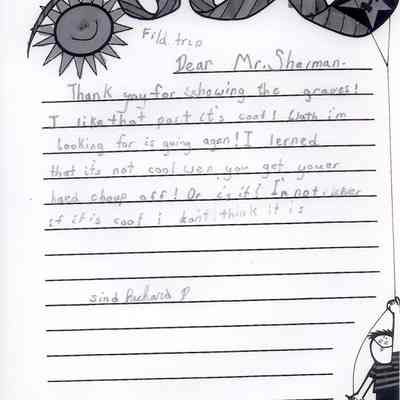 Fild trip
Dear Mr. Sherman.
Thank you for showing the graves!
I like that part it's cool! Wath i'm
looking for is going agen! I lerned
that it's not cool wen you get youer
haed choup off! Or is it! I'm not
if it is cool i don't think it is
sind Richard P